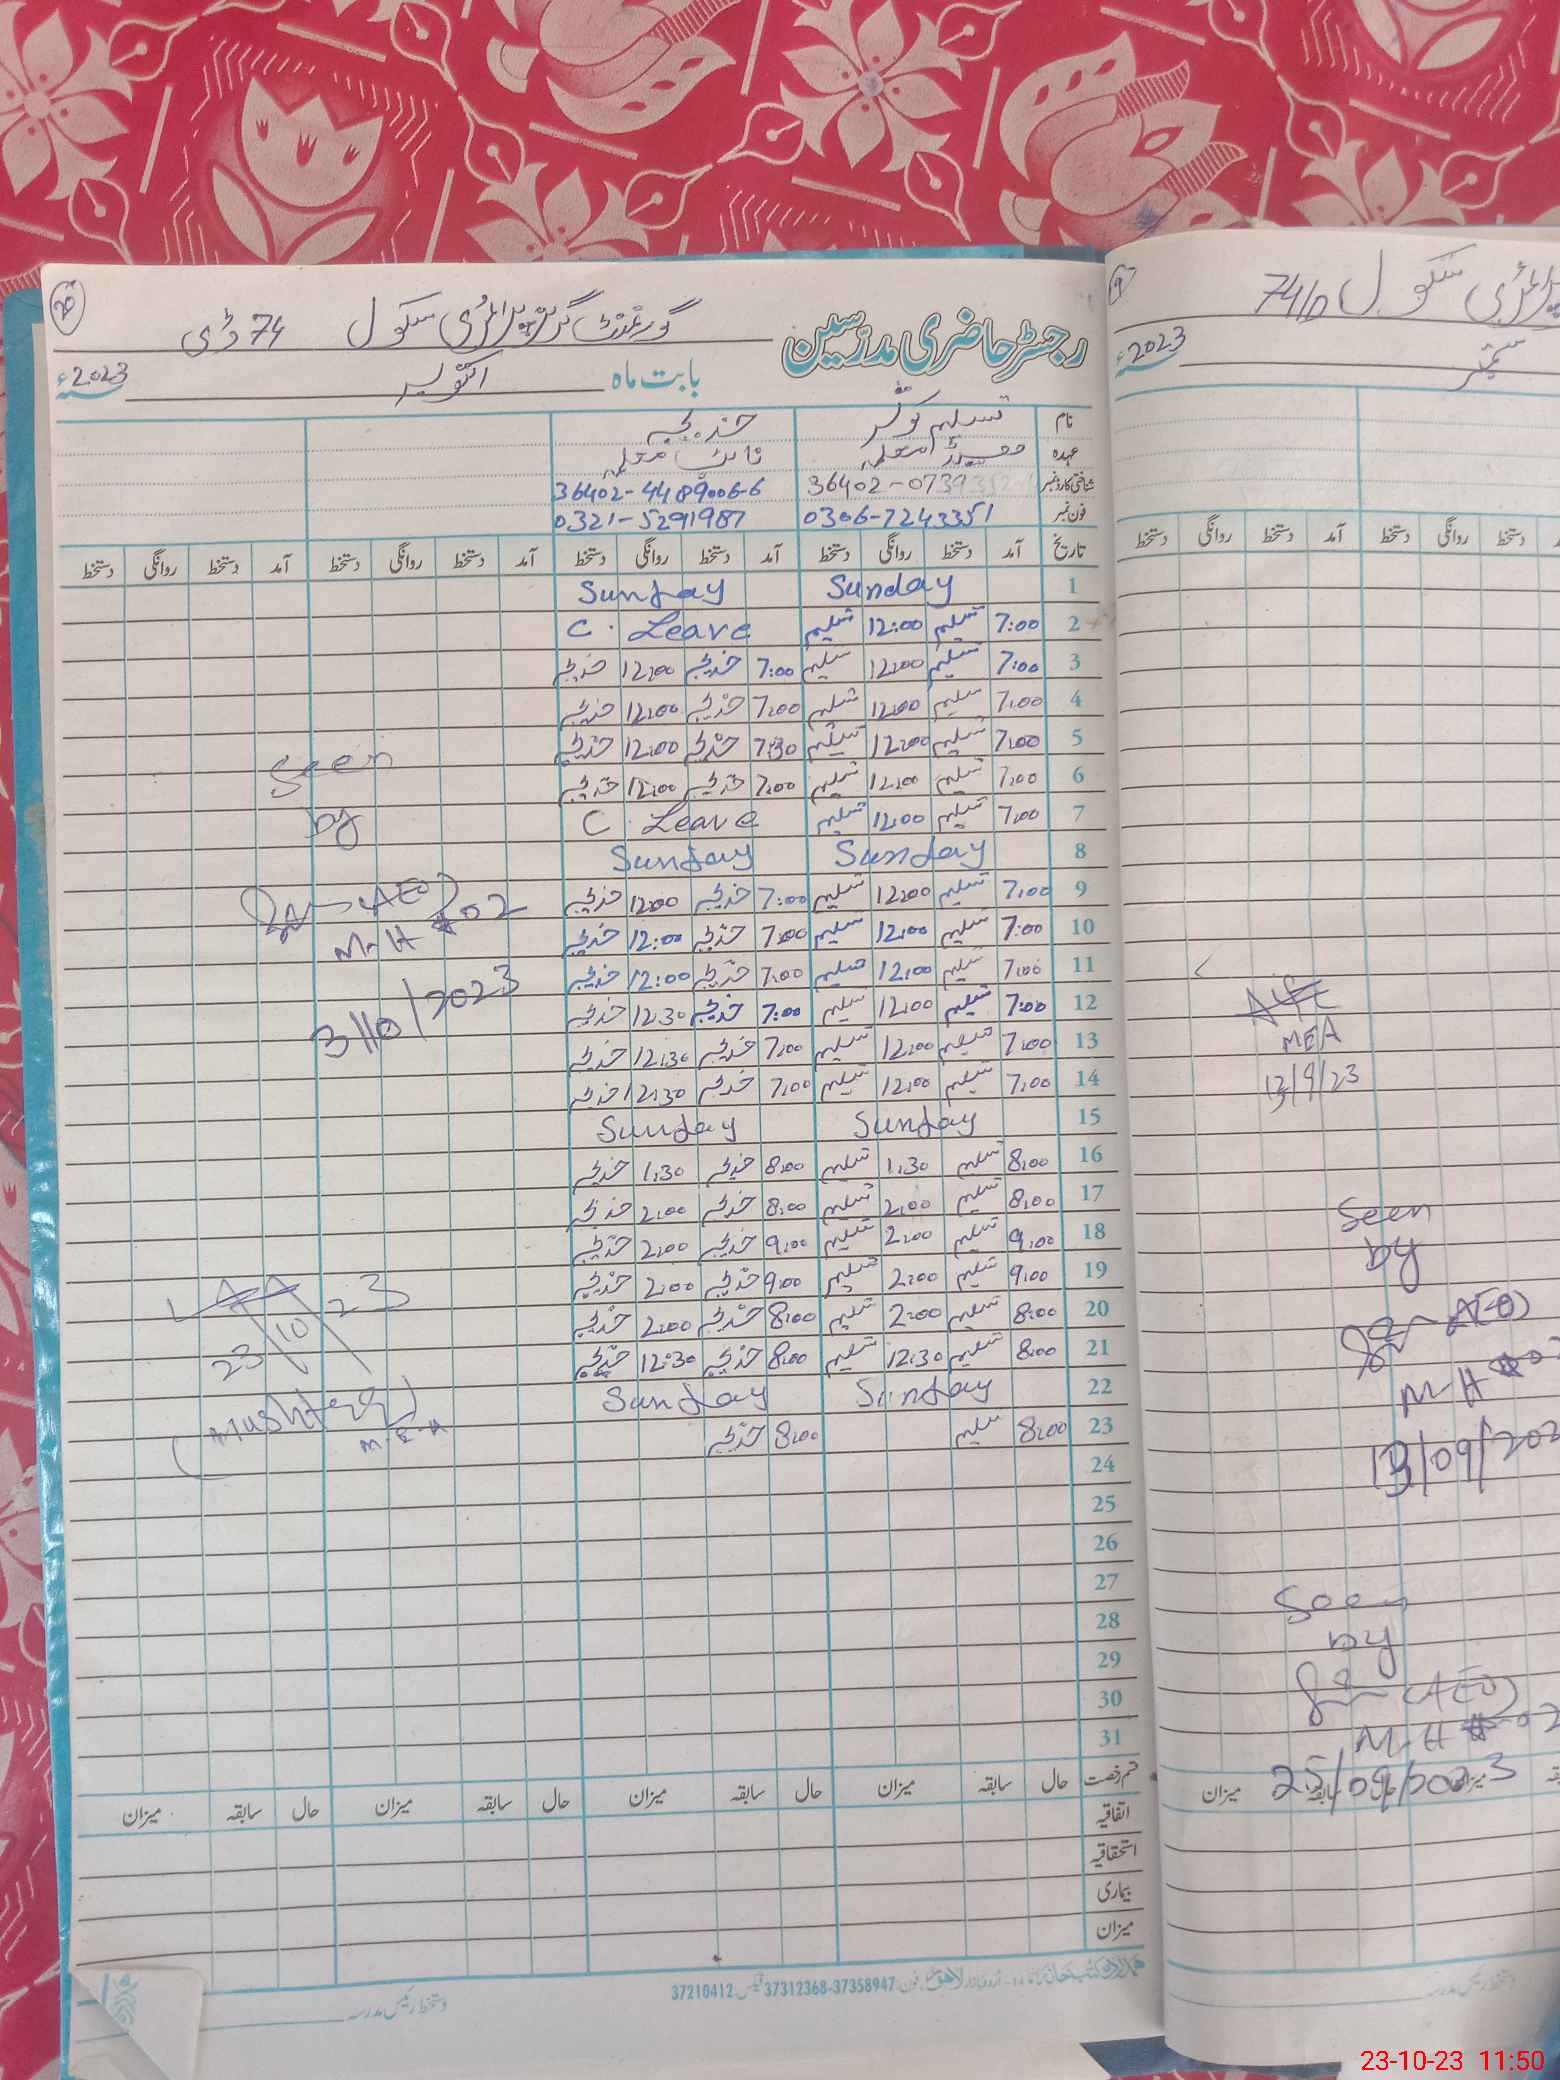 رجسٹر حاضری مدرسین گورنمنٹ گرلز پرائمری سکول 74 ڈی
بابت ماہ اکتوبر 2023ء
نام تسلیم کوثر خدیجہ
عہدہ ہیڈ معلمہ نائب معلمہ
شناختی کارڈ نمبر 36402-0739352 36402-4489006-6
فون نمبر 0306-7243351 0321-5291987
تاریخ آمد دستخط روانگی دستخط آمد دستخط روانگی دستخط آمد دستخط روانگی دستخط آمد دستخط روانگی دستخط
1 Sunday Sunday
2 7:00 تسلیم 12:00 تسلیم C. Leave
3 7:00 تسلیم 12:00 تسلیم 7:00 خدیجہ 12:00 خدیجہ
4 7:00 تسلیم 12:00 تسلیم 7:00 خدیجہ 12:00 خدیجہ
5 7:00 تسلیم 12:00 تسلیم 7:30 خدیجہ 12:00 خدیجہ
6 7:00 تسلیم 12:00 تسلیم 7:00 خدیجہ 12:00 خدیجہ
7 7:00 تسلیم 12:00 تسلیم C. Leave
8 Sunday Sunday
9 7:00 تسلیم 12:00 تسلیم 7:00 خدیجہ 12:00 خدیجہ
10 7:00 تسلیم 12:00 تسلیم 7:00 خدیجہ 12:00 خدیجہ
11 7:00 تسلیم 12:00 تسلیم 7:00 خدیجہ 12:00 خدیجہ
12 7:00 تسلیم 12:00 تسلیم 7:00 خدیجہ 12:30 خدیجہ
13 7:00 تسلیم 12:00 تسلیم 7:00 خدیجہ 12:30 خدیجہ
14 7:00 تسلیم 12:00 تسلیم 7:00 خدیجہ 12:30 خدیجہ
15 Sunday Sunday
16 8:00 تسلیم 1:30 تسلیم 8:00 خدیجہ 1:30 خدیجہ
17 8:00 تسلیم 2:00 تسلیم 8:00 خدیجہ 2:00 خدیجہ
18 9:00 تسلیم 2:00 تسلیم 9:00 خدیجہ 2:00 خدیجہ
19 9:00 تسلیم 2:00 تسلیم 9:00 خدیجہ 2:00 خدیجہ
20 8:00 تسلیم 2:00 تسلیم 8:00 خدیجہ 2:00 خدیجہ
21 8:00 تسلیم 12:30 تسلیم 8:00 خدیجہ 12:30 خدیجہ
22 Sunday Sunday
23 8:00 تسلیم 8:00 خدیجہ
24
25
26
27
28
29
30
31
قسم رخصت حال سابقہ میزان حال سابقہ میزان حال سابقہ میزان حال سابقہ میزان
اتفاقیہ
استحقاقیہ
بیماری
میزان
37312368-37358947 فیکس: 37210412
دستخط رئیس مدرسہ
Seen
by
(AEO)
M-H #02
3/10/2023
23/10/23
M.E.A
پرائمری سکول 74/D
ستمبر 2023ء
دستخط روانگی دستخط آمد دستخط روانگی دستخط
MEA
13/9/23
Seen
by
(AEO)
M-H #02
13/09/202
Seen
by
(AEO)
M-H #02
25/09/2023
میزان سابقہ حال میزان
دستخط رئیس مدرسہ
23-10-23 11:50